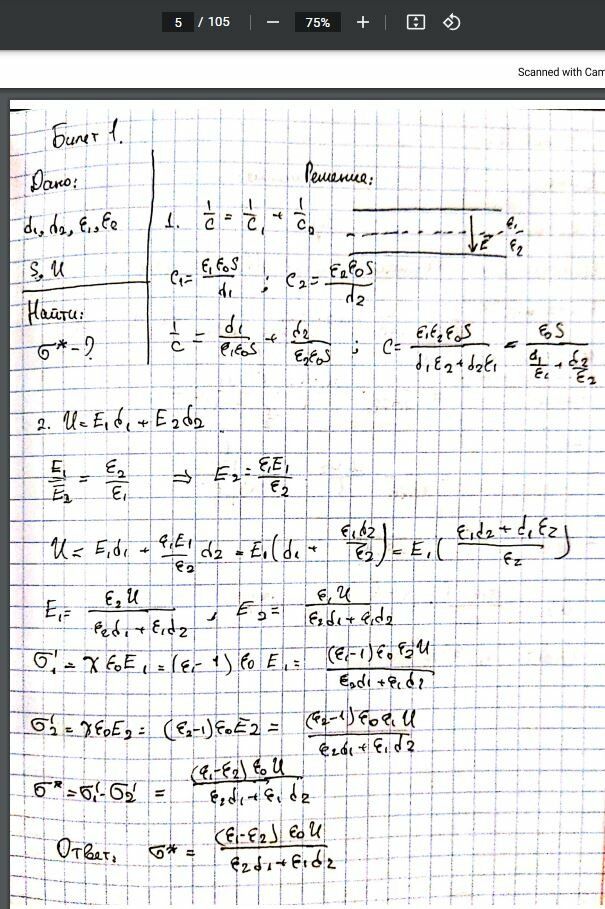 5 / 105 75%
Scanned with Cam
Билет 1.
Дано:
d₁, d₂, ε₁, ε₂
S, U
Найти:
σ* - ?
Решение:
1. 1/C = 1/C₁ + 1/C₂
E ε₁
ε₂
C₁ = ε₁ε₀S/d₁ ; C₂ = ε₂ε₀S/d₂
1/C = d₁/ε₁ε₀S + d₂/ε₂ε₀S ; C = ε₁ε₂ε₀S/(d₁ε₂ + d₂ε₁) = ε₀S/(d₁/ε₁ + d₂/ε₂)
2. U = E₁d₁ + E₂d₂
E₁/E₂ = ε₂/ε₁ ⇒ E₂ = ε₁E₁/ε₂
U = E₁d₁ + ε₁E₁/ε₂ d₂ = E₁(d₁ + ε₁d₂/ε₂) = E₁((ε₁d₂ + d₁ε₂)/ε₂)
E₁ = ε₂U/(ε₂d₁ + ε₁d₂) , E₂ = ε₁U/(ε₂d₁ + ε₁d₂)
σ₁' = χε₀E₁ = (ε₁-1)ε₀E₁ = (ε₁-1)ε₀ε₂U/(ε₂d₁ + ε₁d₂)
σ₂' = χε₀E₂ = (ε₂-1)ε₀E₂ = (ε₂-1)ε₀ε₁U/(ε₂d₁ + ε₁d₂)
σ* = σ₁' - σ₂' = (ε₁-ε₂)ε₀U/(ε₂d₁ + ε₁d₂)
Ответ: σ* = (ε₁-ε₂)ε₀U/(ε₂d₁ + ε₁d₂)